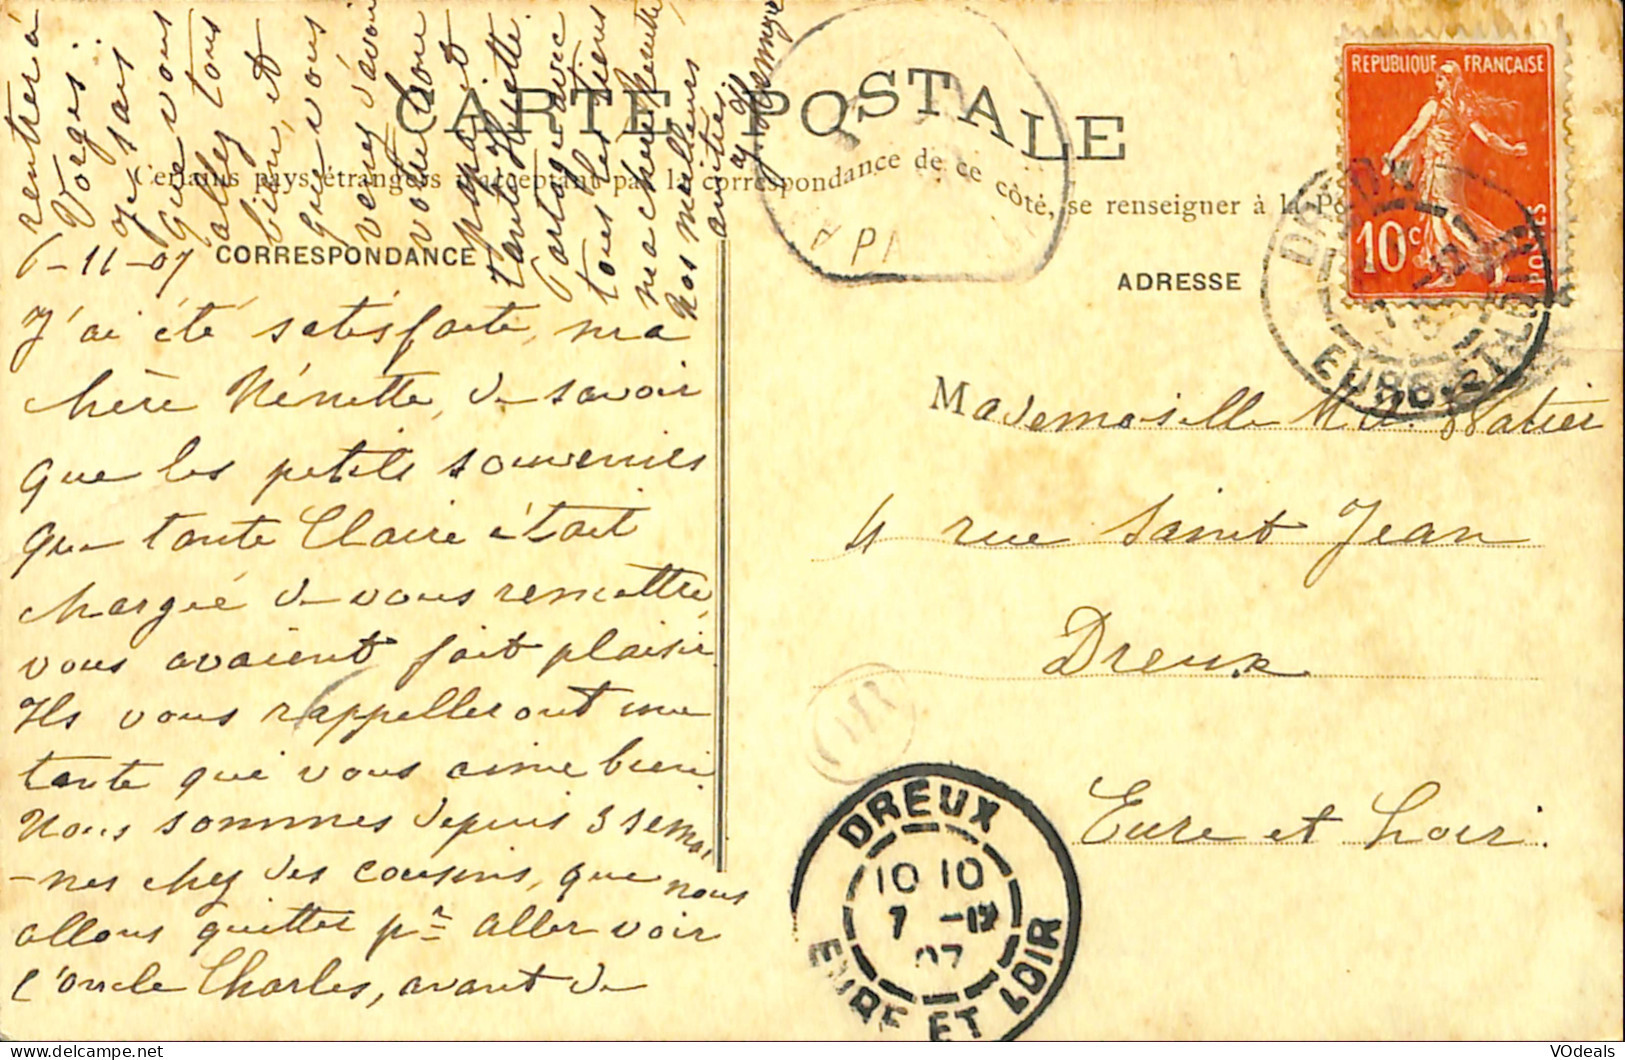 CARTE POSTALE
Certains pays étrangers n'acceptant pas la correspondance de ce côté, se renseigner à la
CORRESPONDANCE
ADRESSE
6-11-07
J'ai été satisfaite, ma
chère Nénette, de savoir
que les petits souvenirs
que tante Claire était
chargée de vous remettre,
vous avaient fait plaisir.
Ils vous rappelleront une
tante qui vous aime bien
Nous sommes depuis 3 semai
-nes chez des cousins, que nous
allons quitter pr aller voir
l'oncle Charles, avant de
rentrer à
Vorges.
Je sais
que vous
allez tous
bien, et
que vous
venez d'avoir
votre bon
papa et
tante
Partage avec
tous les tiens
ma chère Nénette,
nos meilleures
amitiés.
Mademoiselle M
4 rue Saint Jean
Dreux
Eure et Loir.
REPUBLIQUE FRANÇAISE
10c
POSTES
DREUX
EURE
DREUX
10 10
7 -11
07
EURE ET LOIR
VOdeals